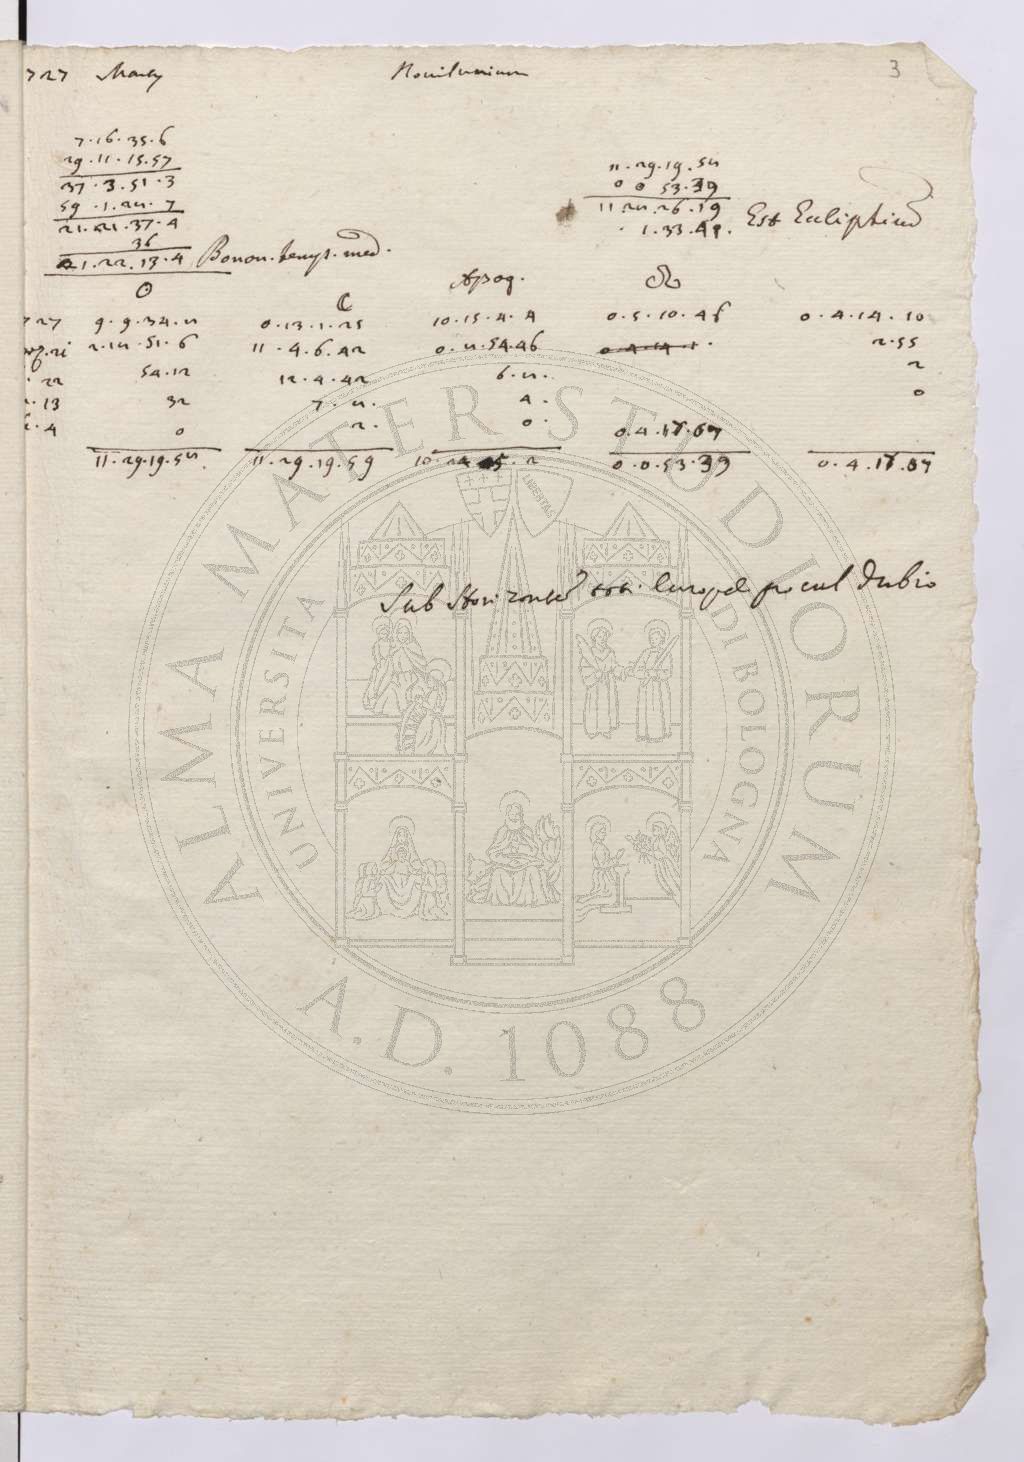 727 Marty Novilunium 3
7.16.35.6
29.11.15.57
37.3.51.3
59.1.24.7
21.21.37.4
36
21.22.13.4 Bonon. temp. med.
11.29.19.54
0 0 53.39
11 24.26.19 Est Ecliptica
1.33.41.
☉ ☾ Apog. ☊
727 9.9.34.4 0.13.1.25 10.15.4.4 0.5.10.46 0.4.14.10
21 2.14.51.6 11.4.6.42 0.4.54.46 0.4.14.1. 2.55
22 54.12 12.4.42 6.4. 2
13 32 7.4. 4. 0
4 0 2. 0. 0.4.17.07
11.29.19.54. 11.29.19.59 10. .2 0.0.53.39 0.4.17.07
Sub Horizonte toti Europe procul dubio
ALMA MATER STUDIORUM
UNIVERSITA DI BOLOGNA
LIBERTAS
A.D. 1088